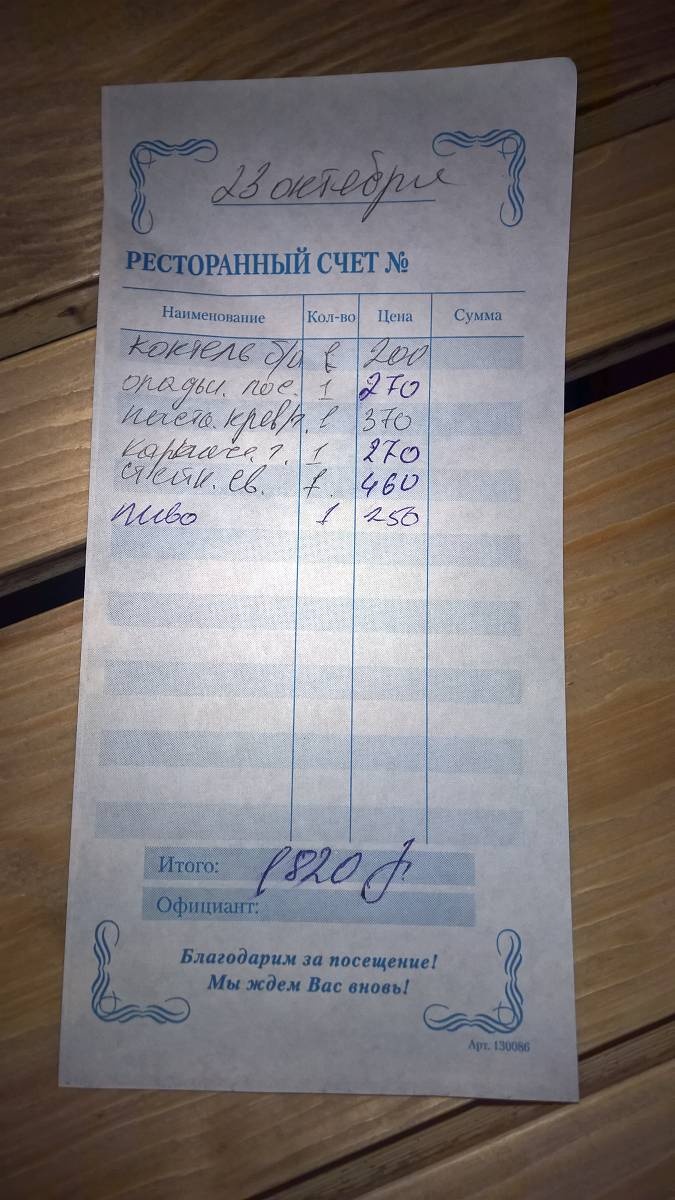 23 октября
РЕСТОРАННЫЙ СЧЕТ №
Наименование Кол-во Цена Сумма
коктель б/а 1 200
оладьи. 1 270
паста. крев/. 1 370
1 270
стейк. св. 1. 460
пиво 1 250
Итого: 1820 р
Официант:
Благодарим за посещение!
Мы ждем Вас вновь!
Арт. 130086